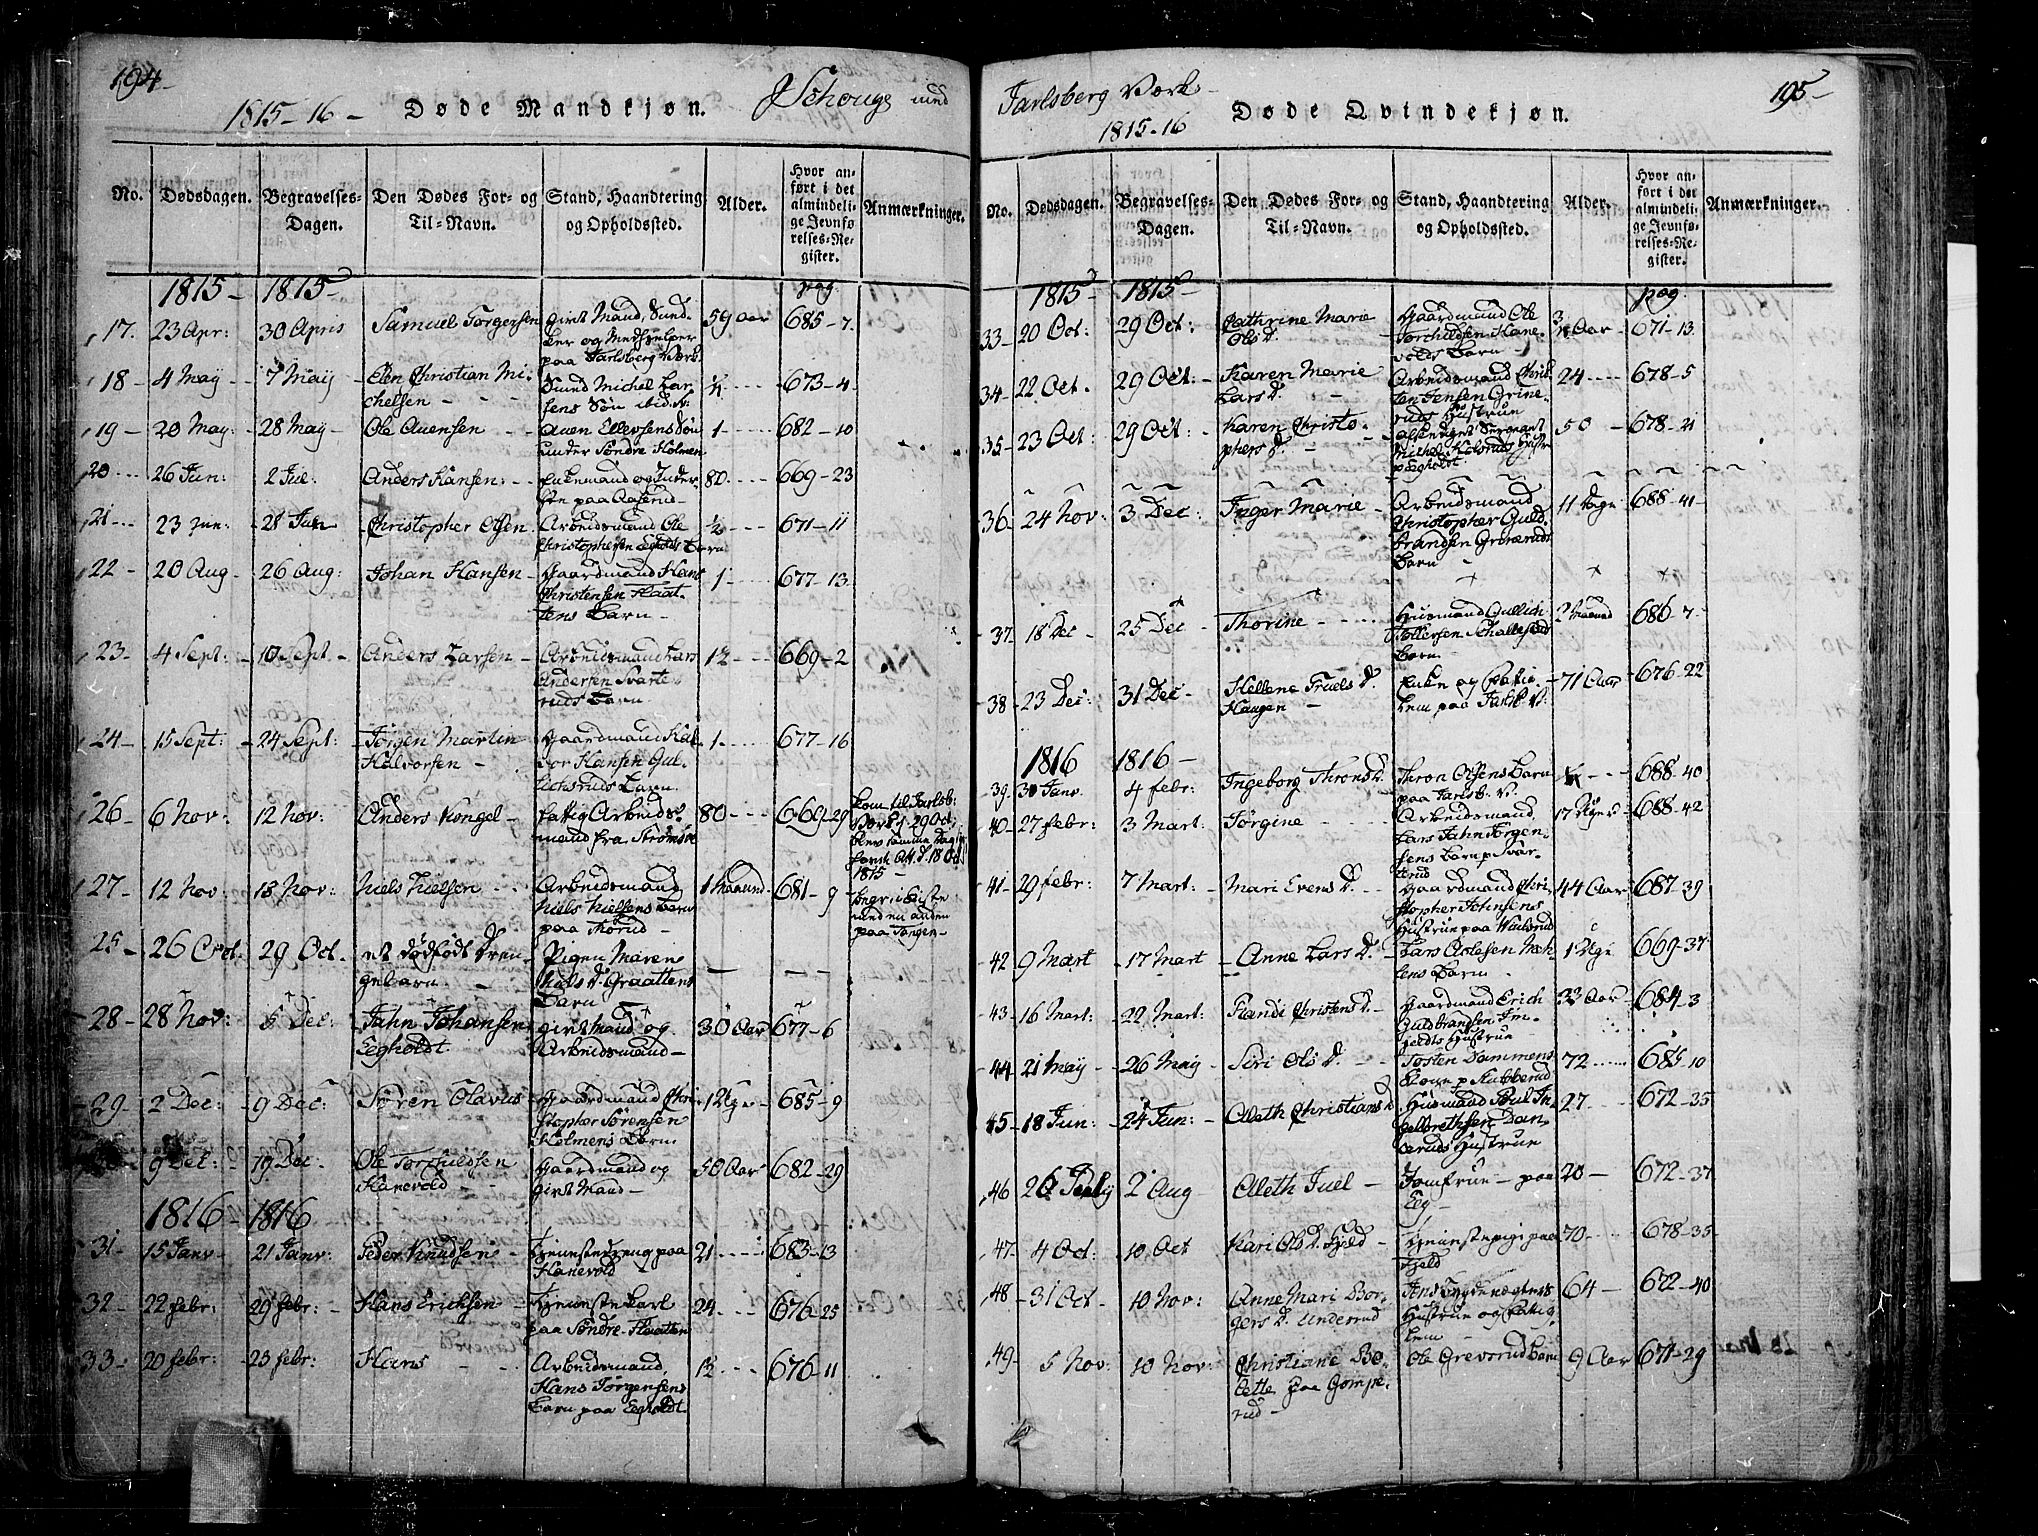 194
1815-16 - Døde Mandkjøn. J Schouge med
No. Dødsdagen. Begravelses-Dagen. Den Dødes For- og Til-Navn. Stand, Haandtering og Opholdssted. Alder. Hvor anført i det almindelige Jevnførelses-Register. Anmærkninger.
1815 - 1815 pag
17. 23 Apr: 30 Apris Samuel Torgersen
59 Aar 685-7.
paa Jarlsberg Værk.
18 - 4 May - 7 May - Christian Michelsen
Michel Larsens Søn ibid.
1/4 673-4
19 - 20 May: 28 May - Ole Auensen
Auen Ellefsens Søn under Søndre Holmen
1 682-10
20 26 Jun: 2 Jul: Anders Hansen:
paa Aaserud
80 669-23
21 23 Jun: 28 Jun Christopher Olsen
Arbeidsmand Ole Christophersen Egholdts Barn
1/2 671-11
22 - 20 Aug - 26 Aug: Johan Hansen -
Gaardmand Hans Christensen Flaattens Barn -
1 677-13
23 - 4 Sept: 10 Sept - Anders Larsen -
Arbeidsmand Lars Andersen Svarteruds Barn
12 669-2
24 - 15 Sept: - 24 Sept: Jørgen Martin Halvorsen -
Gaardmand Halvor Hansen Gullichsruds Barn
1 677-16
26 - 6 Nov: 12 Nov: Anders Kongel -
fattig Arbeidsmand fra Strømsøe
80 669-29
kom til Jarlsb: Værk
1815 -
27 - 12 Nov: 18 Nov: Niels Nielsen
Arbeidsmand Niels Nielsens Barn paa Thorud -
1 Maaned 681-9
paa Tangen
25 - 26 Oct. 29 Oct. et dødfødt Drengebarn -
Pigen Maren Niels D. Graattens Barn
28 - 28 Nov: 5 Dec: Jahn Johansen Eegholdt.
givt Mand og Arbeidsmand -
30 Aar 677-6
29 - 2 Dec: 9 Dec: Søren Olavus
Gaardmand Christopher Sørensen Holmens Barn.
1 Uge 685-9
9 Dec: 19 Dec. Ole Torchildsen Hanevold
Gaardmand og givt Mand -
50 Aar 682-29
1816 - 1816
31 - 15 Janv - 21 Janv: Peder Knudsen
Tienistedreng paa Hanevold
21 683-13
32 - 22 febr: 29 febr: - Hans Ericksen
Tienistekarl paa Søndre Flaatten
24 676-25
33 - 20 febr: - 23 febr: Hans
Arbeidsmand Hans Jørgensens Barn paa Egholdt
12 676-11
Jarlsberg Værk - 195 -
1815-16 Døde Qvindekjøn.
No. Dødsdagen. Begravelses-Dagen. Den Dødes For- og Til-Navn. Stand, Haandtering og Opholdssted. Alder. Hvor anført i det almindelige Jevnførelses-Register. Anmærkninger.
1815 - 1815 - pag
33 - 20 Oct: 29 Oct: Cathrine Marie Ols D.
Gaardmand Ole Torchildsen Hanevolds Barn
Aar 671-13
34 - 22 Oct. 29 Oct: - Karen Marie Lars D.
Arbeidsmand Christen Jensen Grineruds Hustrue
24 678-5
35 - 23 Oct: 29 Oct: Karen Christophers D. -
50 - 678-21
36 - 24 Nov: 3 Dec: Inger Marie -
Arbeidsmand Christopher Guldbrandsen Greveruds Barn -
11 Dage 688-41
37 - 18 Dec - 25 Dec Thorine
Huusmand Gullich Tollefsen Barn -
2 Maaned 686-7
38 - 23 Dec: 31 Dec - Hellene Truels D. Haugen -
Enke og Fattiglem paa Jarlsb. V.
71 Aar 676-22
1816 1816 -
39 - 30 Janv 4 febr: Ingeborg Throns D.
Thron Olsens Barn paa Jarlsb. V.
688-40
40 - 27 febr: 3 Mart: Jørgine
Arbeidsmand Lars Jahn Jørgensens Barn p Svarterud
17 Uger 688-42
41 - 29 febr: 7 Mart: - Mari Evens D.
Gaardmand Christopher Johnsens Hustrue paa
44 Aar 687-39
42 - 9 Mart - 17 Mart - Anne Lars D. -
Lars Barn
1 Uge 669-37
43 - 16 Mart: 22 Mart: - Randi Christens D. -
Gaardmand Erich Guldbrandsen Hustrue
33 Aar 684-3
44 - 21 May - 26 May - Siri Ols D -
Tosten Sammens Kone p Stubberud
72 685-10
45 - 18 Jun: 24 Jun: - Aleth Christians D
Huusmand Poul Hustrue
27 672-35
46 26 July 2 Aug - Aleth Juel -
Jomfrue - paa Eeg -
20 - 672-37
47 - 4 Oct: 10 Oct Kari Ols D. Fjeld -
Tienistepige paa Fjeld
70 678-35
48 - 31 Oct. 10 Nov: Anne Mari Borgers D. Underrud
Hustrue og Fattiglem
64 - 672-40
49 - 5 Nov: 10 Nov: Christiane Bolette paa Gomperud -
Ole Grevsrud Barn
9 Aar 671-29